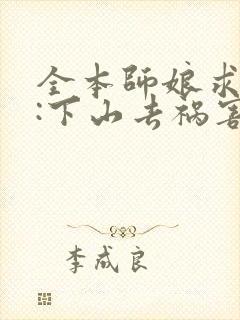 全本师娘求
:下山去祸害
李成良